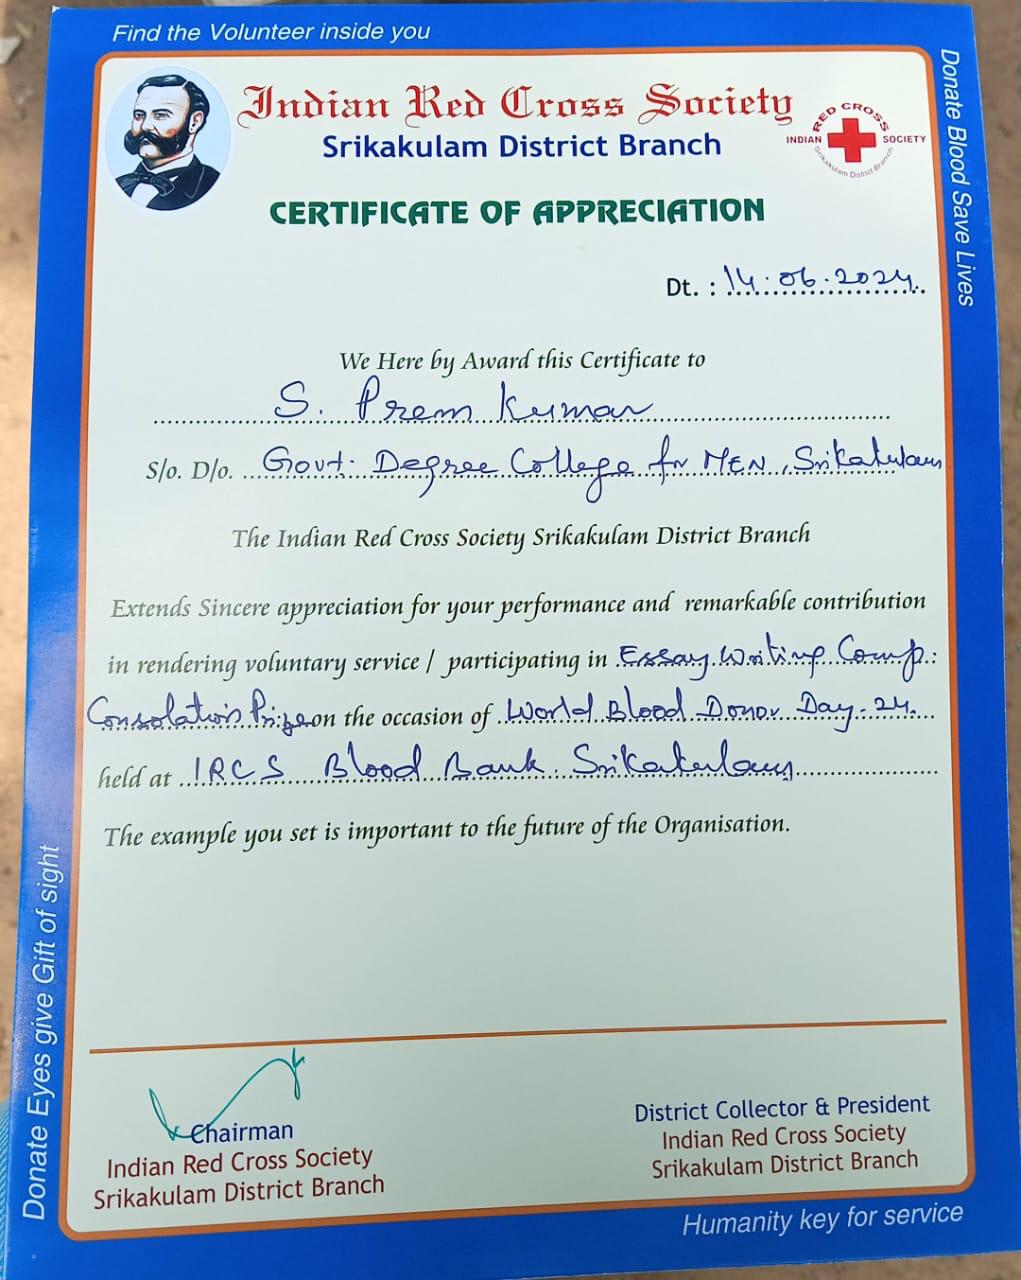 Find the Volunteer inside you
Indian Red Cross Society
Srikakulam District Branch
RED CROSS
INDIAN SOCIETY
Srikakulam District Branch
CERTIFICATE OF APPRECIATION
Dt. : 14.06.2024.
We Here by Award this Certificate to
S. Prem Kumar
S/o. D/o. Govt. Degree College for MEN, Srikakulam
The Indian Red Cross Society Srikakulam District Branch
Extends Sincere appreciation for your performance and remarkable contribution
in rendering voluntary service / participating in Essay Writing Comp:
Consolation Prize on the occasion of World Blood Donor Day-24.
held at IRCS Blood Bank Srikakulam
The example you set is important to the future of the Organisation.
Chairman
Indian Red Cross Society
Srikakulam District Branch
District Collector & President
Indian Red Cross Society
Srikakulam District Branch
Humanity key for service
Donate Eyes give Gift of sight
Donate Blood Save Lives